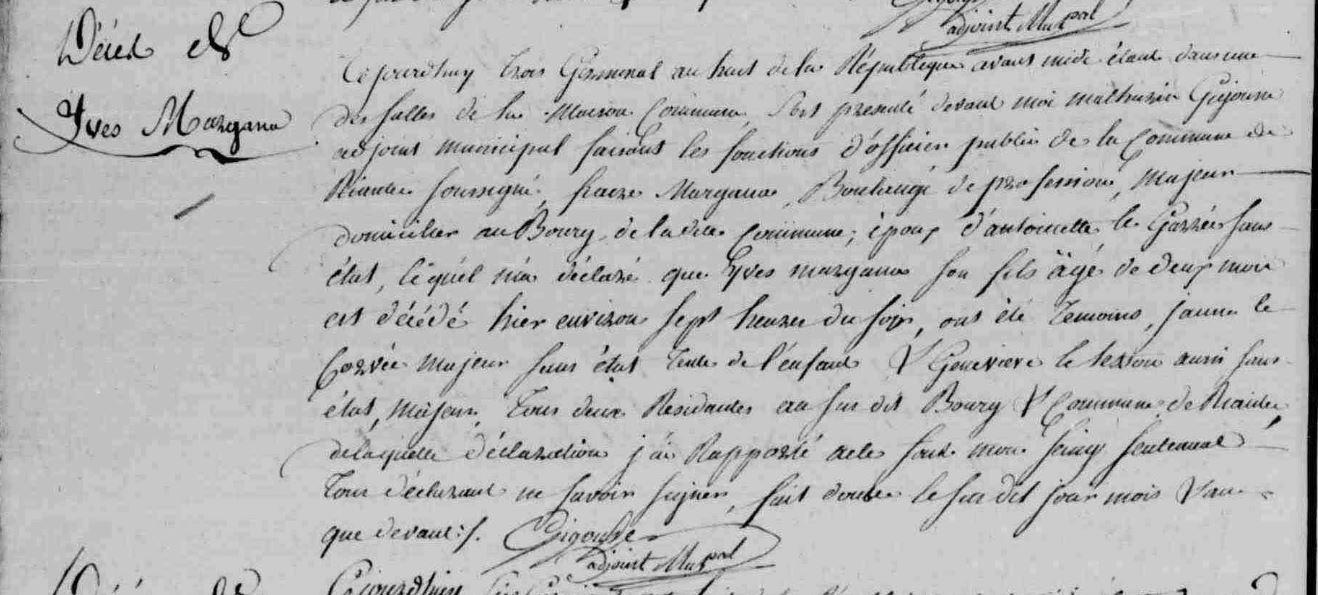 adjoint Mupal
Décès de
Yves Margana
Cejourdhuy trois Germinal an huit de la République avant midi étant dans une
des salles de la Maison Commune, s'est presenté devant moi mathurin
adjoint municipal faisant les fonctions d'officier public de la Commune de
soussigné, Margana, Boulangé de profession, majeur
domicilier au Bourg de la dite Commune, époux d'antoinette le sans
état, lequel m'a déclaré que Yves margana son fils âgé de deux mois
est décédé hier environ sept heures du soir, ont été temoins, janne le
majeur sans état tente de l'enfant & Genevieve le aussi sans
état, majeur, tous deux Residantes au sus dit Bourg & Commune de
de laquelle déclaration j'ai Rapporté acte sous mon seing seulement
tous déclarant ne savoir signer, fait double le sus dit jour mois & an
que devant :/.
adjoint Mupal
Cejourdhuy